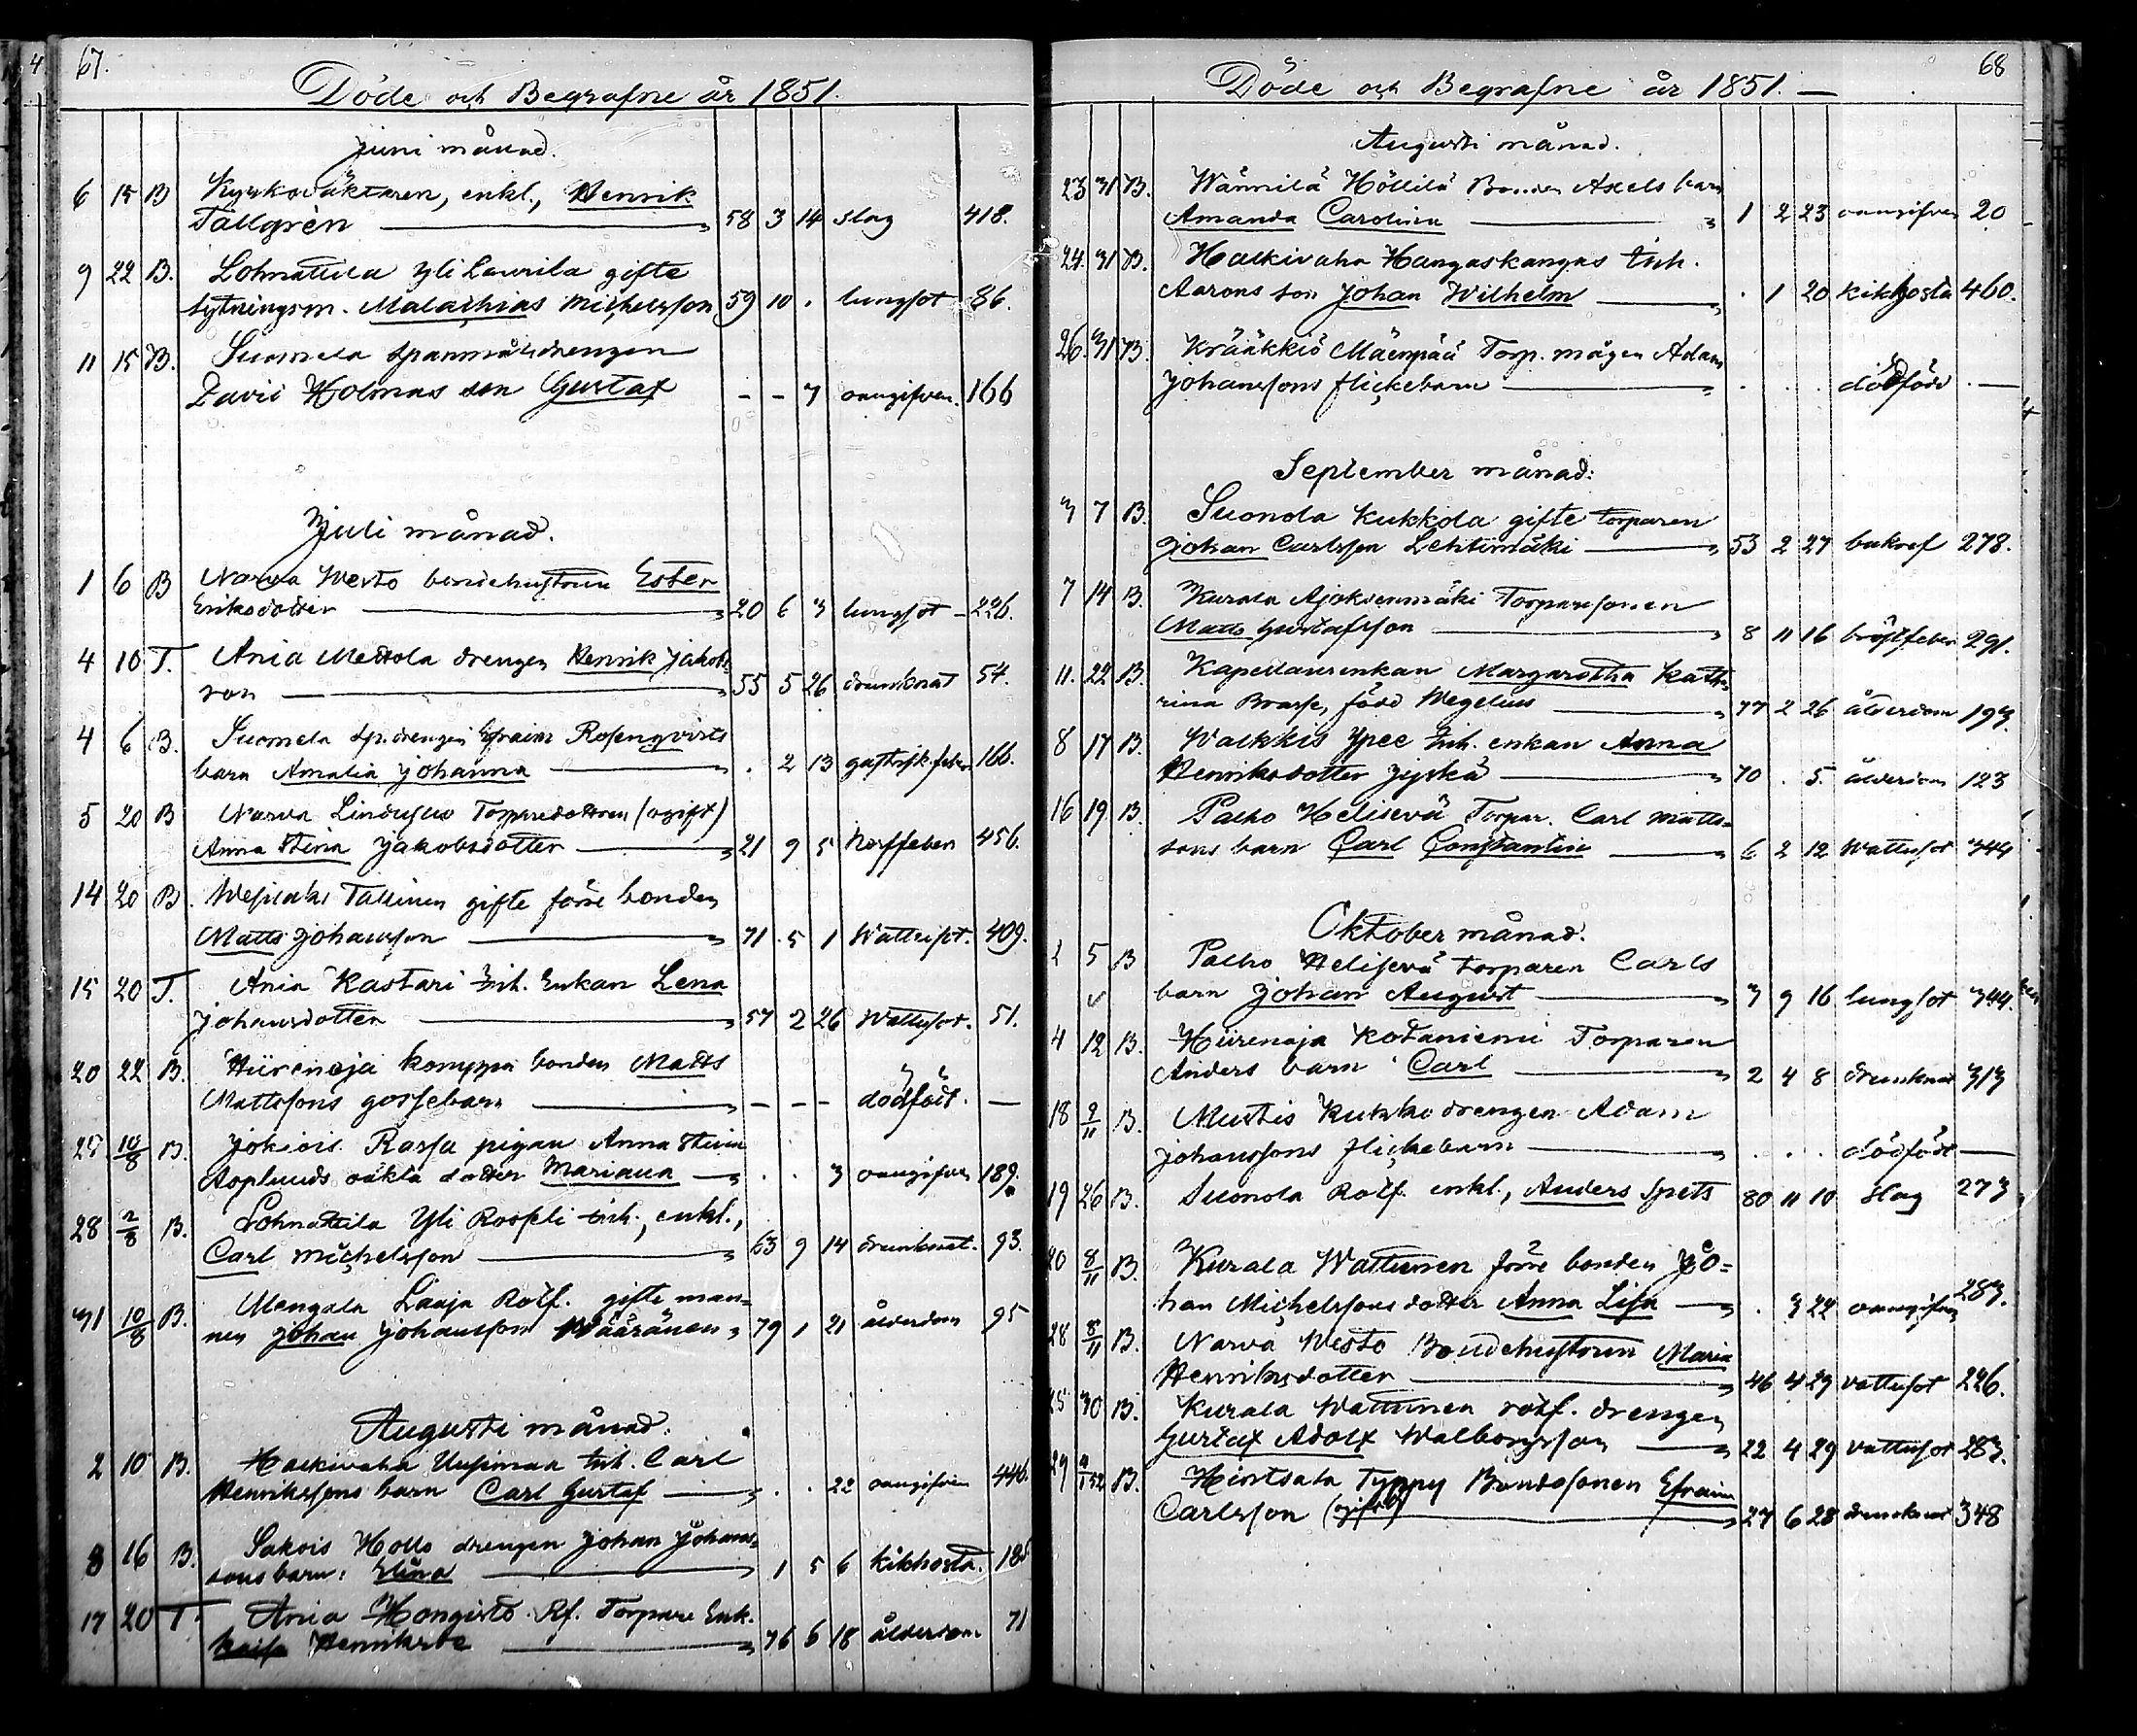 67.
Döde och Begrafne år 1851.
Juni månad.
6 15 B Kyrkoväktaren, enkl., Henrik
Tallgrèn 58 3 14 slag 418.
9 22 B. Lohnattula Yli Laurila gifte
sytningsm. Malachias Michelsson 59 10 . lungsot 86.
11 15 B. Suomela spanmålsdrengen
David Holmas son Gustaf - - 7 oangifven. 166
Juli månad.
1 6 B Narva Westo bondehustrun Ester
Eriksdotter 20 6 3 lungsot 226.
4 10 T. Ania Mettola drengen Henrik Jakobs
son 55 5 26 drunknat 54.
4 6 B. Suomela sp.drengen Efraim Rosenqvists
barn Amalia Johanna . 2 13 gastrisk feber 166.
5 20 B Narva Torparedottren (ogift)
Anna Stina Jakobsdotter 21 9 5 456.
14 20 B. Wesilaks Tallinen gifte förre bonden
Matts Johansson 71 . 5 1 Wattusot. 409.
15 20 T. Ania Kastari Inh. Enkan Lena
Johansdotter 57 2 26 Wattusot. 51.
20 22 B. Hiirenoja bonden Matts
Mattssons gossebarn - - - dödfödt. —
28 10/8 B. Jokiois Rassa pigan Anna Stina
Asplunds oäkta dotter Mariana . . 3 oangifven 189.
28 2/8 B. Lohnattila Yli Rospli inh., enkl.,
Carl Michelsson 63 9 14 drunknat. 93.
31 10/8 B. Mengala Laaja Rotf. gifte man-
nen Johan Johansson Wääränen 79 1 21 ålderdom 95
Augusti månad.
2 10 B. Halkivaha Uusimaa Inh. Carl
Henrikssons barn Carl Gustaf . . 22 oangifven 446.
8 16 B. Sakois Hollo drengen Johan Johans-
sons barn: Stina 1 5 6 kikhosta. 18
17 20 T. Ania Hongisto Rf. Torpare Enk.
Kaisa Henriksdr 76 6 18 ålderdom 71
68
Döde och Begrafne år 1851. —
Augusti månad.
23 31 B. Wännilä Höllilä Bonden Axels barn
Amanda Carolina 1 2 23 oangifven 20
24. 31 B. Halkivaha Hangaskangas Inh.
Aarons son Johan Wilhelm . 1 20 kikhosta 460.
26. 31 B. Krääkkiö Mäenpää Torp. mågen Adam
Johanssons flickebarn . . . dödfödd . —
September månad:
3 7 B. Suonola Kukkola gifte torparen
Johan Carlsson Lehtimäki 53 2 27 278.
7 14 B. Kurala Ajoksenmäki Torparesonen
Matts Gustafsson 8 11 16 bröstfeber 291.
11. 22 B. Kapellansenkan Margaretha Katha-
rina Brasse, född Wegelius 77 2 26 ålderdom 193.
8 17 B. Walkkis Ypee Inh. enkan Anna
Henriksdotter Jyskä 70 . 5. ålderdom 123
16 19 B. Palho Helisevä Torpar. Carl Matts-
sons barn Carl Constantin 6 2 12 Wattusot 344
Oktober månad.
2 5 B Palho Helisevä torparen Carls
barn Johan August 3 9 16 lungsot 344.
4 12 B. Hiirenoja Kotaniemi Torparen
Anders barn Carl 2 4 8 drunknat 313
18 9/11 B. Mustis Kukko drengen Adam
Johanssons flickebarn . . . dödfödt —
19 26 B. Suonola Rotf. enkl., Anders Spets 80 11 10 slag 273
20 8/11 B. Kurala Wattunen förre bonden Jo-
han Michelssons dotter Anna Lisa . 3 22 oangifven 283.
28 8/11 B. Narva Westo Bondehustrun Maria
Henriksdotter 46 4 29 vattusot 226.
25 30 B. Kurala Wattunen rotf. drengen
Gustaf Adolf Walborgsson 22 4 29 vattusot 283.
29 4/1 52 B. Hintsala Typpy Bondesonen Efraim
Carlsson (ogift) 27 6 28 drunknat 348